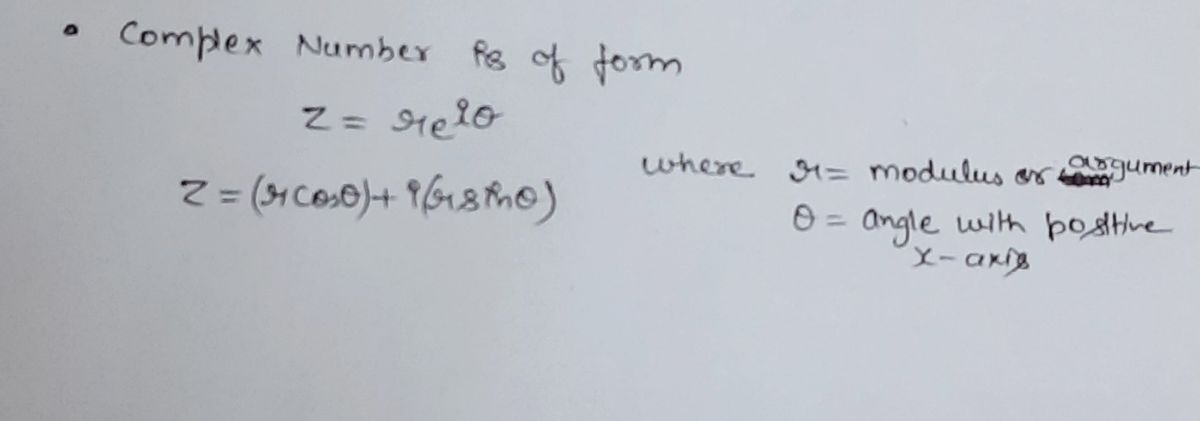 • Complex Number is of form
z = re^{iθ}
z = (r cosθ) + i(r sinθ)
where r = modulus or argument
θ = angle with positive
x-axis